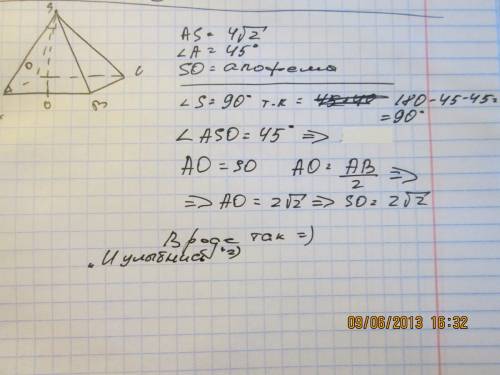 S
AS = 4√2
∠A = 45°
SO = апофема
∠S = 90° т.к = 180 - 45 - 45 =
= 90°
∠ASO = 45° =>
AO = SO AO = AB/2 =>
=> AO = 2√2 => SO = 2√2
Вроде так =)
"И улыбнись" =)
O
C
O
B
09/06/2013 16:32